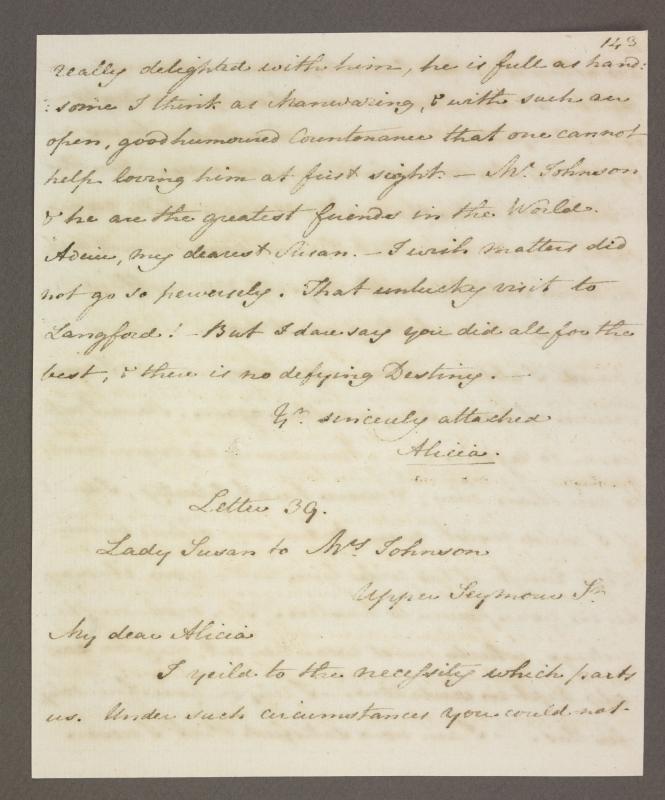 143
really delighted with him, he is full as hand:
:some I think as Manwaring, & with such an
open, goodhumoured Countenance that one cannot
help loving him at first sight. — Mr. Johnson
& he are the greatest friends in the World.
Adeiu, my dearest Susan. — I wish matters did
not go so perversely. That unlucky visit to
Langford! — But I dare say you did all for the
best, & there is no defying Destiny. —
Yr. sincerely attached
Alicia.
Letter 39.
Lady Susan to Mrs Johnson
Upper Seymour St.
My dear Alicia
I yeild to the necessity which parts
us. Under such circumstances you could not